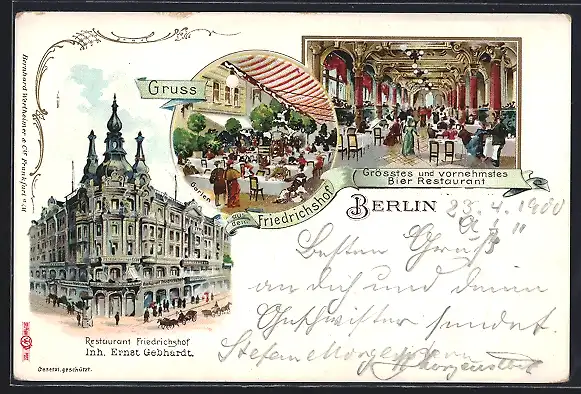 Bernhard Wertheimer & Cie Frankfurt a/M
Gruss
Garten
aus
dem
Friedrichshof
Grösstes und vornehmstes
Bier Restaurant
BERLIN 23.4.1900
Besten Gruß
an dich und deine
Geschwister sendet
Stefan Morgenstern
Morgenstern
Restaurant Friedrichshof
Inh. Ernst Gebhardt.
General. geschützt.